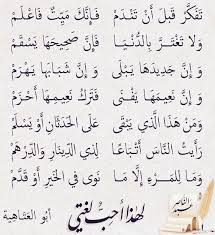 تَفَكَّرْ قَبْلَ أَنْ تَنْدَمْ فَإِنَّكَ مَيِّتٌ فَاعْلَمْ
وَلَا تَغْتَرَّ بِالدُّنْيَا فَإِنَّ صَحِيحَهَا يَسْقَمْ
وَإِنَّ جَدِيدَهَا يَبْلَى وَإِنَّ شَبَابَهَا يَهْرَمْ
وَإِنَّ نَعِيمَهَا يَفْنَى فَتَرْكُ نَعِيمِهَا أَحْزَمْ
وَمَنْ هَذَا الَّذِي يَبْقَى عَلَى الْحَدَثَانِ أَوْ يَسْلَمْ
رَأَيْتُ النَّاسَ أَتْبَاعًا لِذِي الدِّينَارِ وَالدِّرْهَمْ
وَمَا لِلْمَرْءِ إِلَّا مَا نَوَى فِي الْخَيْرِ أَوْ قَدَّمْ
أبو العتاهية
لهذا أحب لغتي